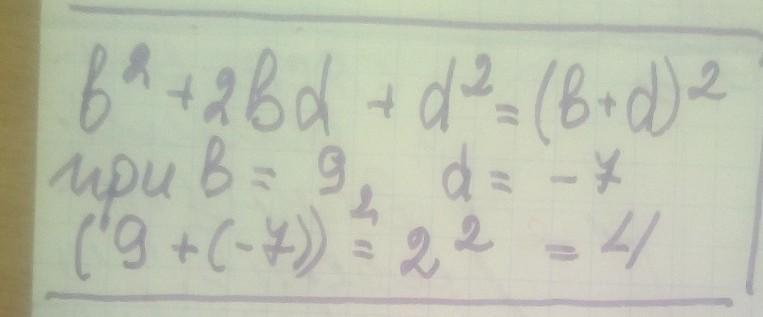 b² + 2bd + d² = (b+d)²
при b = 9, d = -7
(9 + (-7))² = 2² = 4